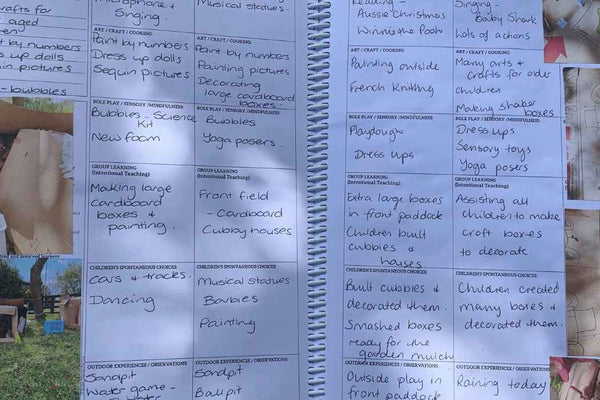 crafts for
aged
by numbers
up dolls
in pictures
microphone &
Singing.
Musical statues.
ART / CRAFT / COOKING
Paint by numbers
Dress up dolls
Sequin pictures
ART / CRAFT / COOKING
Paint by numbers
Painting pictures
Decorating
large cardboard
boxes
ROLE PLAY / SENSORY / MINDFULNESS
Bubbles - Science
Kit
New foam
ROLE PLAY / SENSORY / MINDFULNESS
Bubbles
Yoga posers.
GROUP LEARNING
(Intentional Teaching)
Making large
cardboard
boxes &
painting.
GROUP LEARNING
(Intentional Teaching)
Front field
- Cardboard
Cubby houses
CHILDREN'S SPONTANEOUS CHOICES
Cars & tracks.
Dancing
CHILDREN'S SPONTANEOUS CHOICES
Musical statues
Barbies
Painting
OUTDOOR EXPERIENCES / OBSERVATIONS
Sandpit
Water game -
OUTDOOR EXPERIENCES / OBSERVATIONS
Sandpit
Ballpit
Reading -
Aussie Christmas
Winnie the Pooh
Singing -
Baby Shark
Lots of actions
ART / CRAFT / COOKING
Painting outside
French Knitting
ART / CRAFT / COOKING
Many arts &
crafts for older
children
Making shaker
boxes
ROLE PLAY / SENSORY / MINDFULNESS
Playdough
Dress ups
ROLE PLAY / SENSORY / MINDFULNESS
Dress ups
Sensory toys
Yoga posers
GROUP LEARNING
(Intentional Teaching)
Extra large boxes
in front paddock
Children built
cubbies &
houses
GROUP LEARNING
(Intentional Teaching)
Assisting all
children to make
croft boxes
to decorate.
CHILDREN'S SPONTANEOUS CHOICES
Built cubbies &
decorated them.
Smashed boxes
ready for the
garden mulch
CHILDREN'S SPONTANEOUS CHOICES
Children created
many boxes &
decorated them.
OUTDOOR EXPERIENCES / OBSERVATIONS
Outside play in
front paddock
OUTDOOR EXPERIENCES / OBSERVATIONS
Raining today